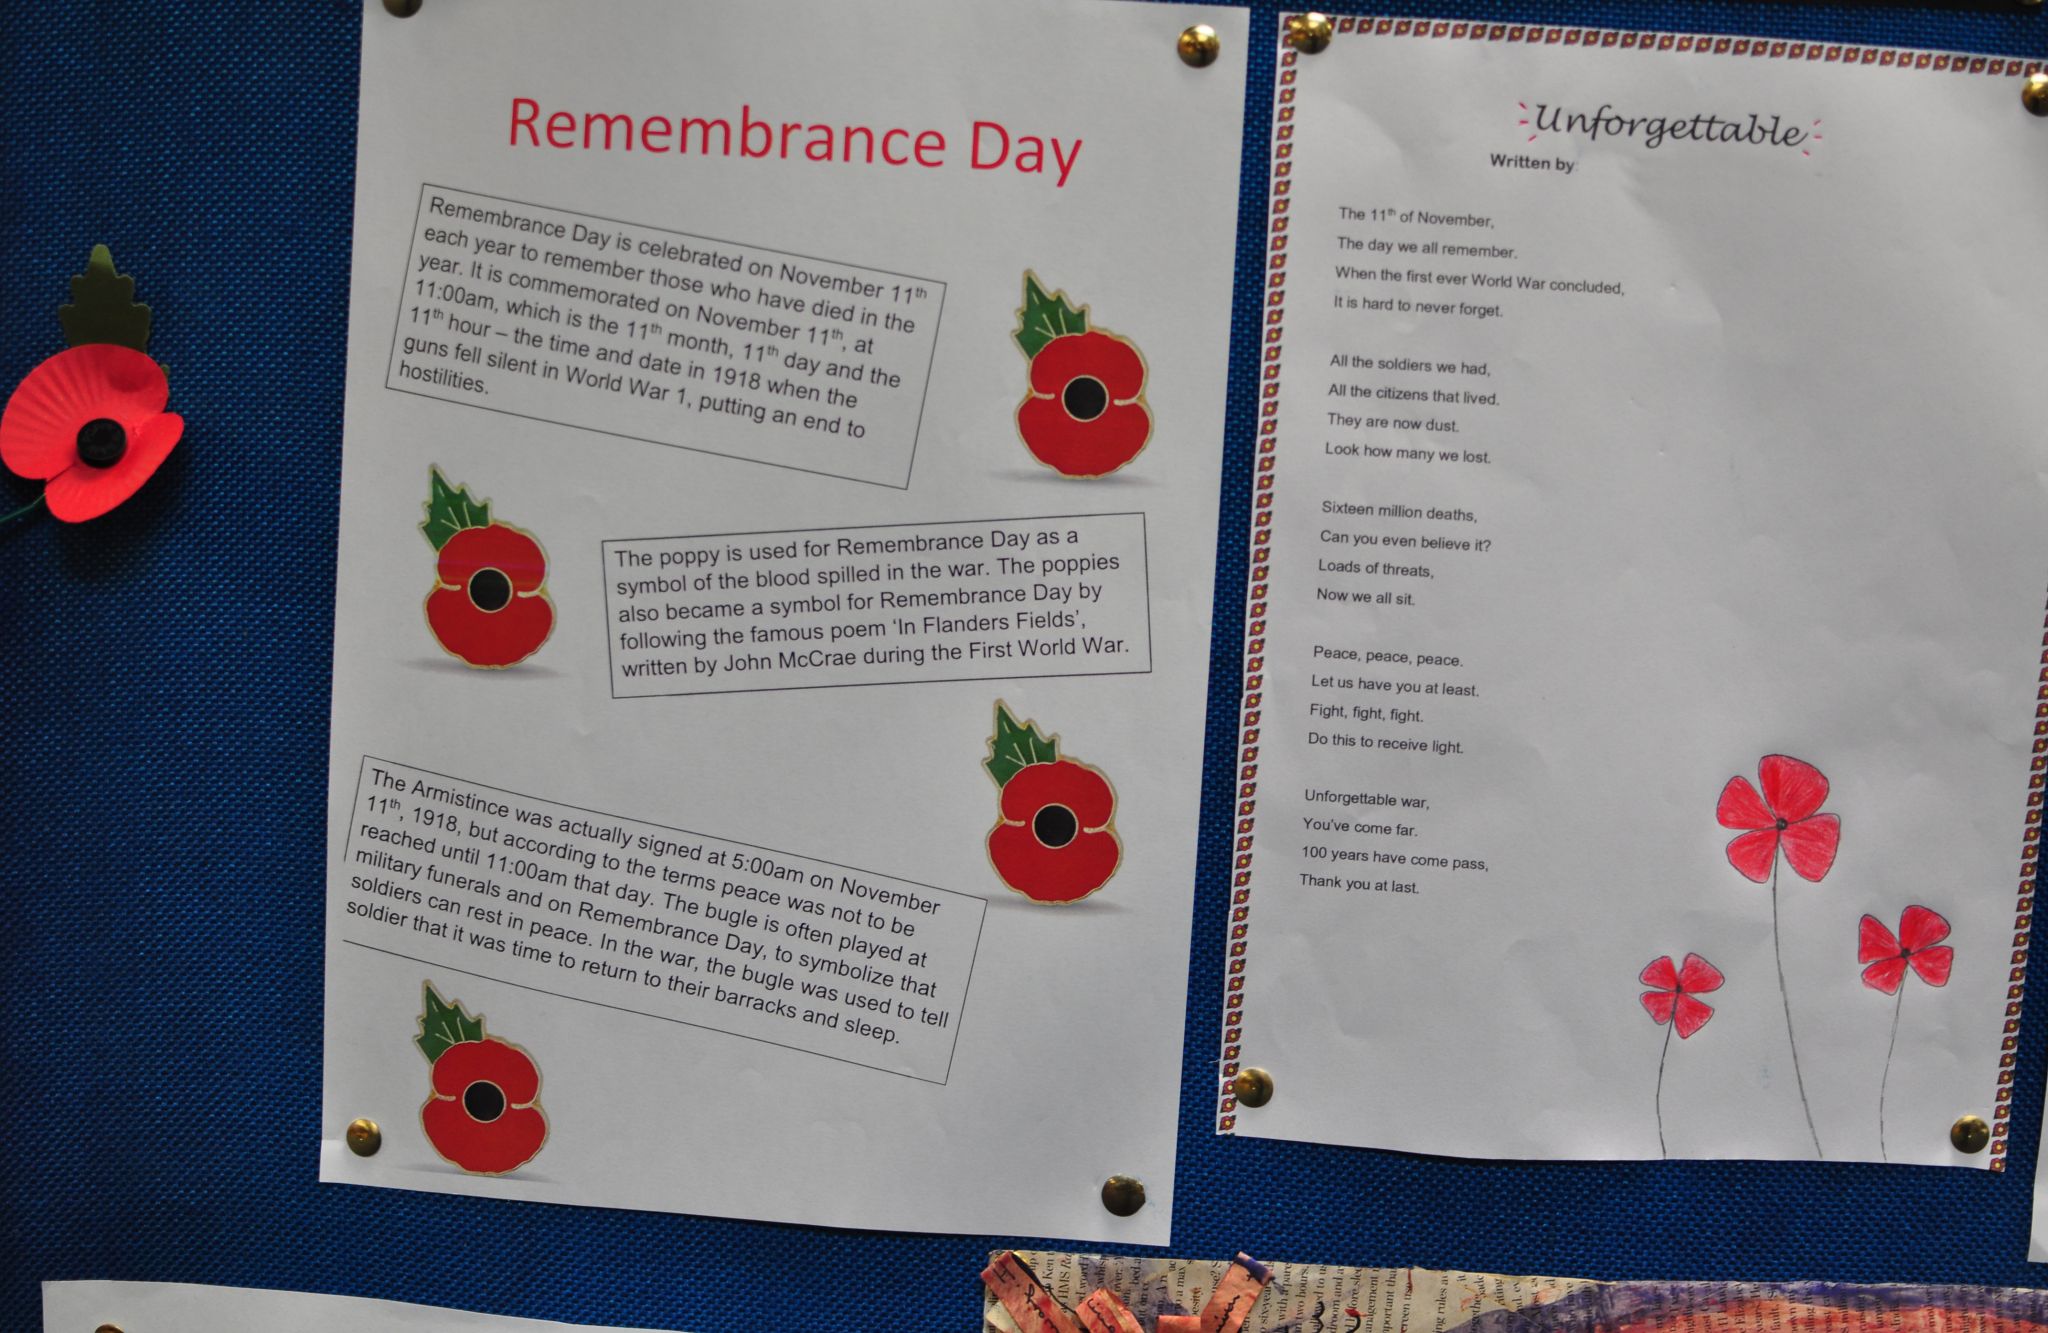 Remembrance Day
Remembrance Day is celebrated on November 11th
each year to remember those who have died in the
year. It is commemorated on November 11th, at
11:00am, which is the 11th month, 11th day and the
11th hour – the time and date in 1918 when the
guns fell silent in World War 1, putting an end to
hostilities.
The poppy is used for Remembrance Day as a
symbol of the blood spilled in the war. The poppies
also became a symbol for Remembrance Day by
following the famous poem ‘In Flanders Fields’,
written by John McCrae during the First World War.
The Armistince was actually signed at 5:00am on November
11th, 1918, but according to the terms peace was not to be
reached until 11:00am that day. The bugle is often played at
military funerals and on Remembrance Day, to symbolize that
soldiers can rest in peace. In the war, the bugle was used to tell
soldier that it was time to return to their barracks and sleep.
Unforgettable
Written by:
The 11th of November,
The day we all remember.
When the first ever World War concluded,
It is hard to never forget.
All the soldiers we had,
All the citizens that lived.
They are now dust.
Look how many we lost.
Sixteen million deaths,
Can you even believe it?
Loads of threats,
Now we all sit.
Peace, peace, peace.
Let us have you at least.
Fight, fight, fight.
Do this to receive light.
Unforgettable war,
You’ve come far.
100 years have come pass,
Thank you at last.